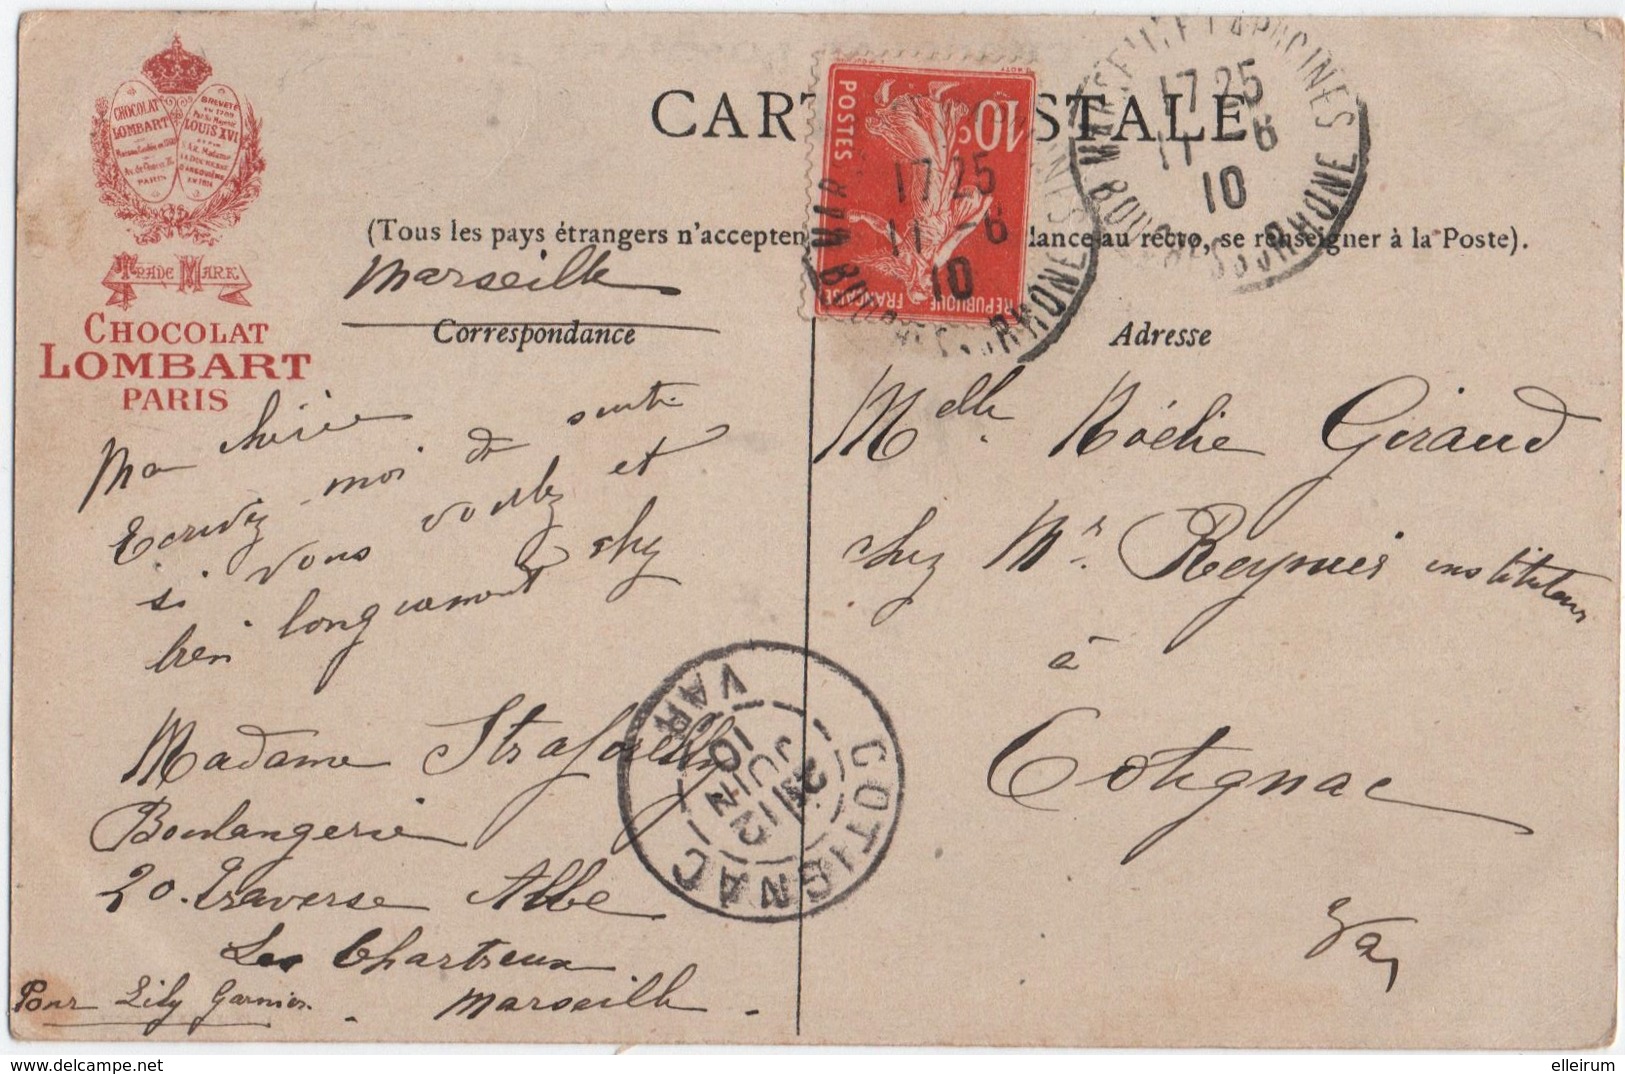 CARTE POSTALE
CHOCOLAT LOMBART
PARIS
BREVETÉ
LOUIS XVI
TRADE MARK
CHOCOLAT
LOMBART
PARIS
(Tous les pays étrangers n'accepten dance au recto, se renseigner à la Poste).
Marseille
Correspondance
Adresse
POSTES
10c
REPUBLIQUE FRANÇAISE
17 25
11 -6
10
BOUCHES DU RHONE
MARSEILLE CAPUCINES
17 25
11 -6
10
BOUCHES DU RHONE
Ma chérie
Ecrivez moi de suite
si vous voulez et
bien longuement chez
Madame Straforelly
Boulangerie
20. Traverse Abbe
Les Chartreux
Marseille.
Pour Lily Garnier.
Melle Noélie Giraud
chez Mr. Reynier instituteur
à
Cotignac
Var
COTIGNAC
12
JUIN
10
VAR
elleirum